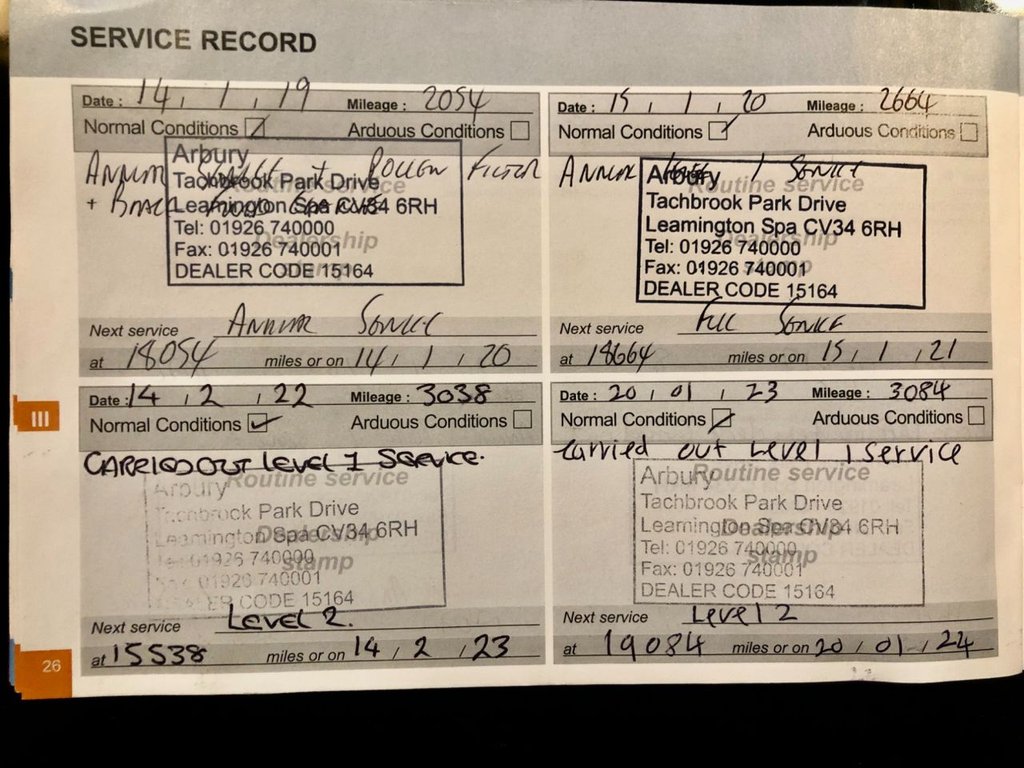 SERVICE RECORD
Date : 14, 1, 19 Mileage : 2054
Normal Conditions Arduous Conditions
Annual Service + Pollen Filter
+ Brake Fluid
Routine service
Dealership
stamp
Arbury
Tachbrook Park Drive
Leamington Spa CV34 6RH
Tel: 01926 740000
Fax: 01926 740001
DEALER CODE 15164
Next service Annual Service
at 18054 miles or on 14, 1, 20
Date : 15, 1, 20 Mileage : 2664
Normal Conditions Arduous Conditions
Annual 1 Service
Routine service
Dealership
stamp
Arbury
Tachbrook Park Drive
Leamington Spa CV34 6RH
Tel: 01926 740000
Fax: 01926 740001
DEALER CODE 15164
Next service Full Service
at 18664 miles or on 15, 1, 21
III
Date : 14, 2, 22 Mileage : 3038
Normal Conditions Arduous Conditions
CARRIED OUT Level 1 Service.
Routine service
Dealership
stamp
Arbury
Tachbrook Park Drive
Leamington Spa CV34 6RH
Tel: 01926 740000
Fax: 01926 740001
DEALER CODE 15164
Next service Level 2.
at 15538 miles or on 14, 2, 23
Date : 20, 01, 23 Mileage : 3084
Normal Conditions Arduous Conditions
Carried out Level 1 Service
Routine service
Dealership
stamp
Arbury
Tachbrook Park Drive
Leamington Spa CV34 6RH
Tel: 01926 740000
Fax: 01926 740001
DEALER CODE 15164
Next service Level 2
at 19084 miles or on 20, 01, 24
26